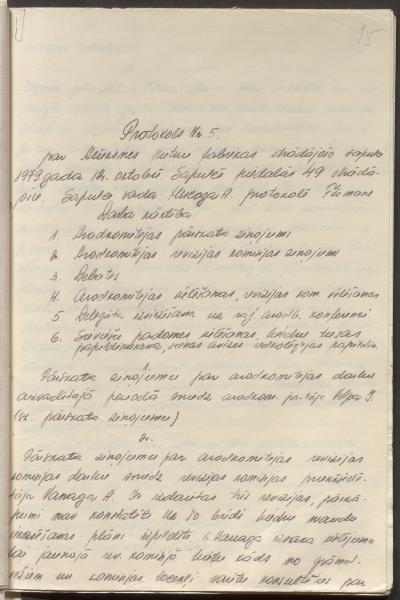 15
Protokols Nr. 5.
par Alūksnes pieņu fabrikas strādājošo sapulci
1979. gada 14. oktobrī. Sapulcē piedalās 49 strādā-
jošie. Sapulci vada: Hercoga A. protokolē
Darba kārtība
1. Arodkomitejas pārskata ziņojums
2. Arodkomitejas revīzijas komisijas ziņojums
3. Debates
4. Arodkomitejas vēlēšanas, revīzijas kom. vēlēšanas
5 Delegāta izvirzīšana uz raj. arodb. konferenci
6. Sieviešu padomes vēlēšanas, biedru tiesas
papildināšana, sienas avīzes
1.
Pārskata ziņojumu par arodkomitejas darbu
aizvadītajā periodā sniedz arodkom. pr-tāja I.
(sk. pārskata ziņojumu)
2.
Pārskata ziņojumu par arodkomitejas revīzijas
komisijas darbu sniedz revīzijas komisijas priekšsēdē-
tāja Vanaga A. Ir izdarītas trīs revīzijas, pārkā-
pumi nav konstatēti uz šo brīdi biedru naudu
iekasēšanas plāns izpildīts b. Vanaga izsaka vēlējumu
lai jaunajā rev. komisijā būtu kāds no grāmat-
vežiem un komisijas locekļi varētu konsultēties par